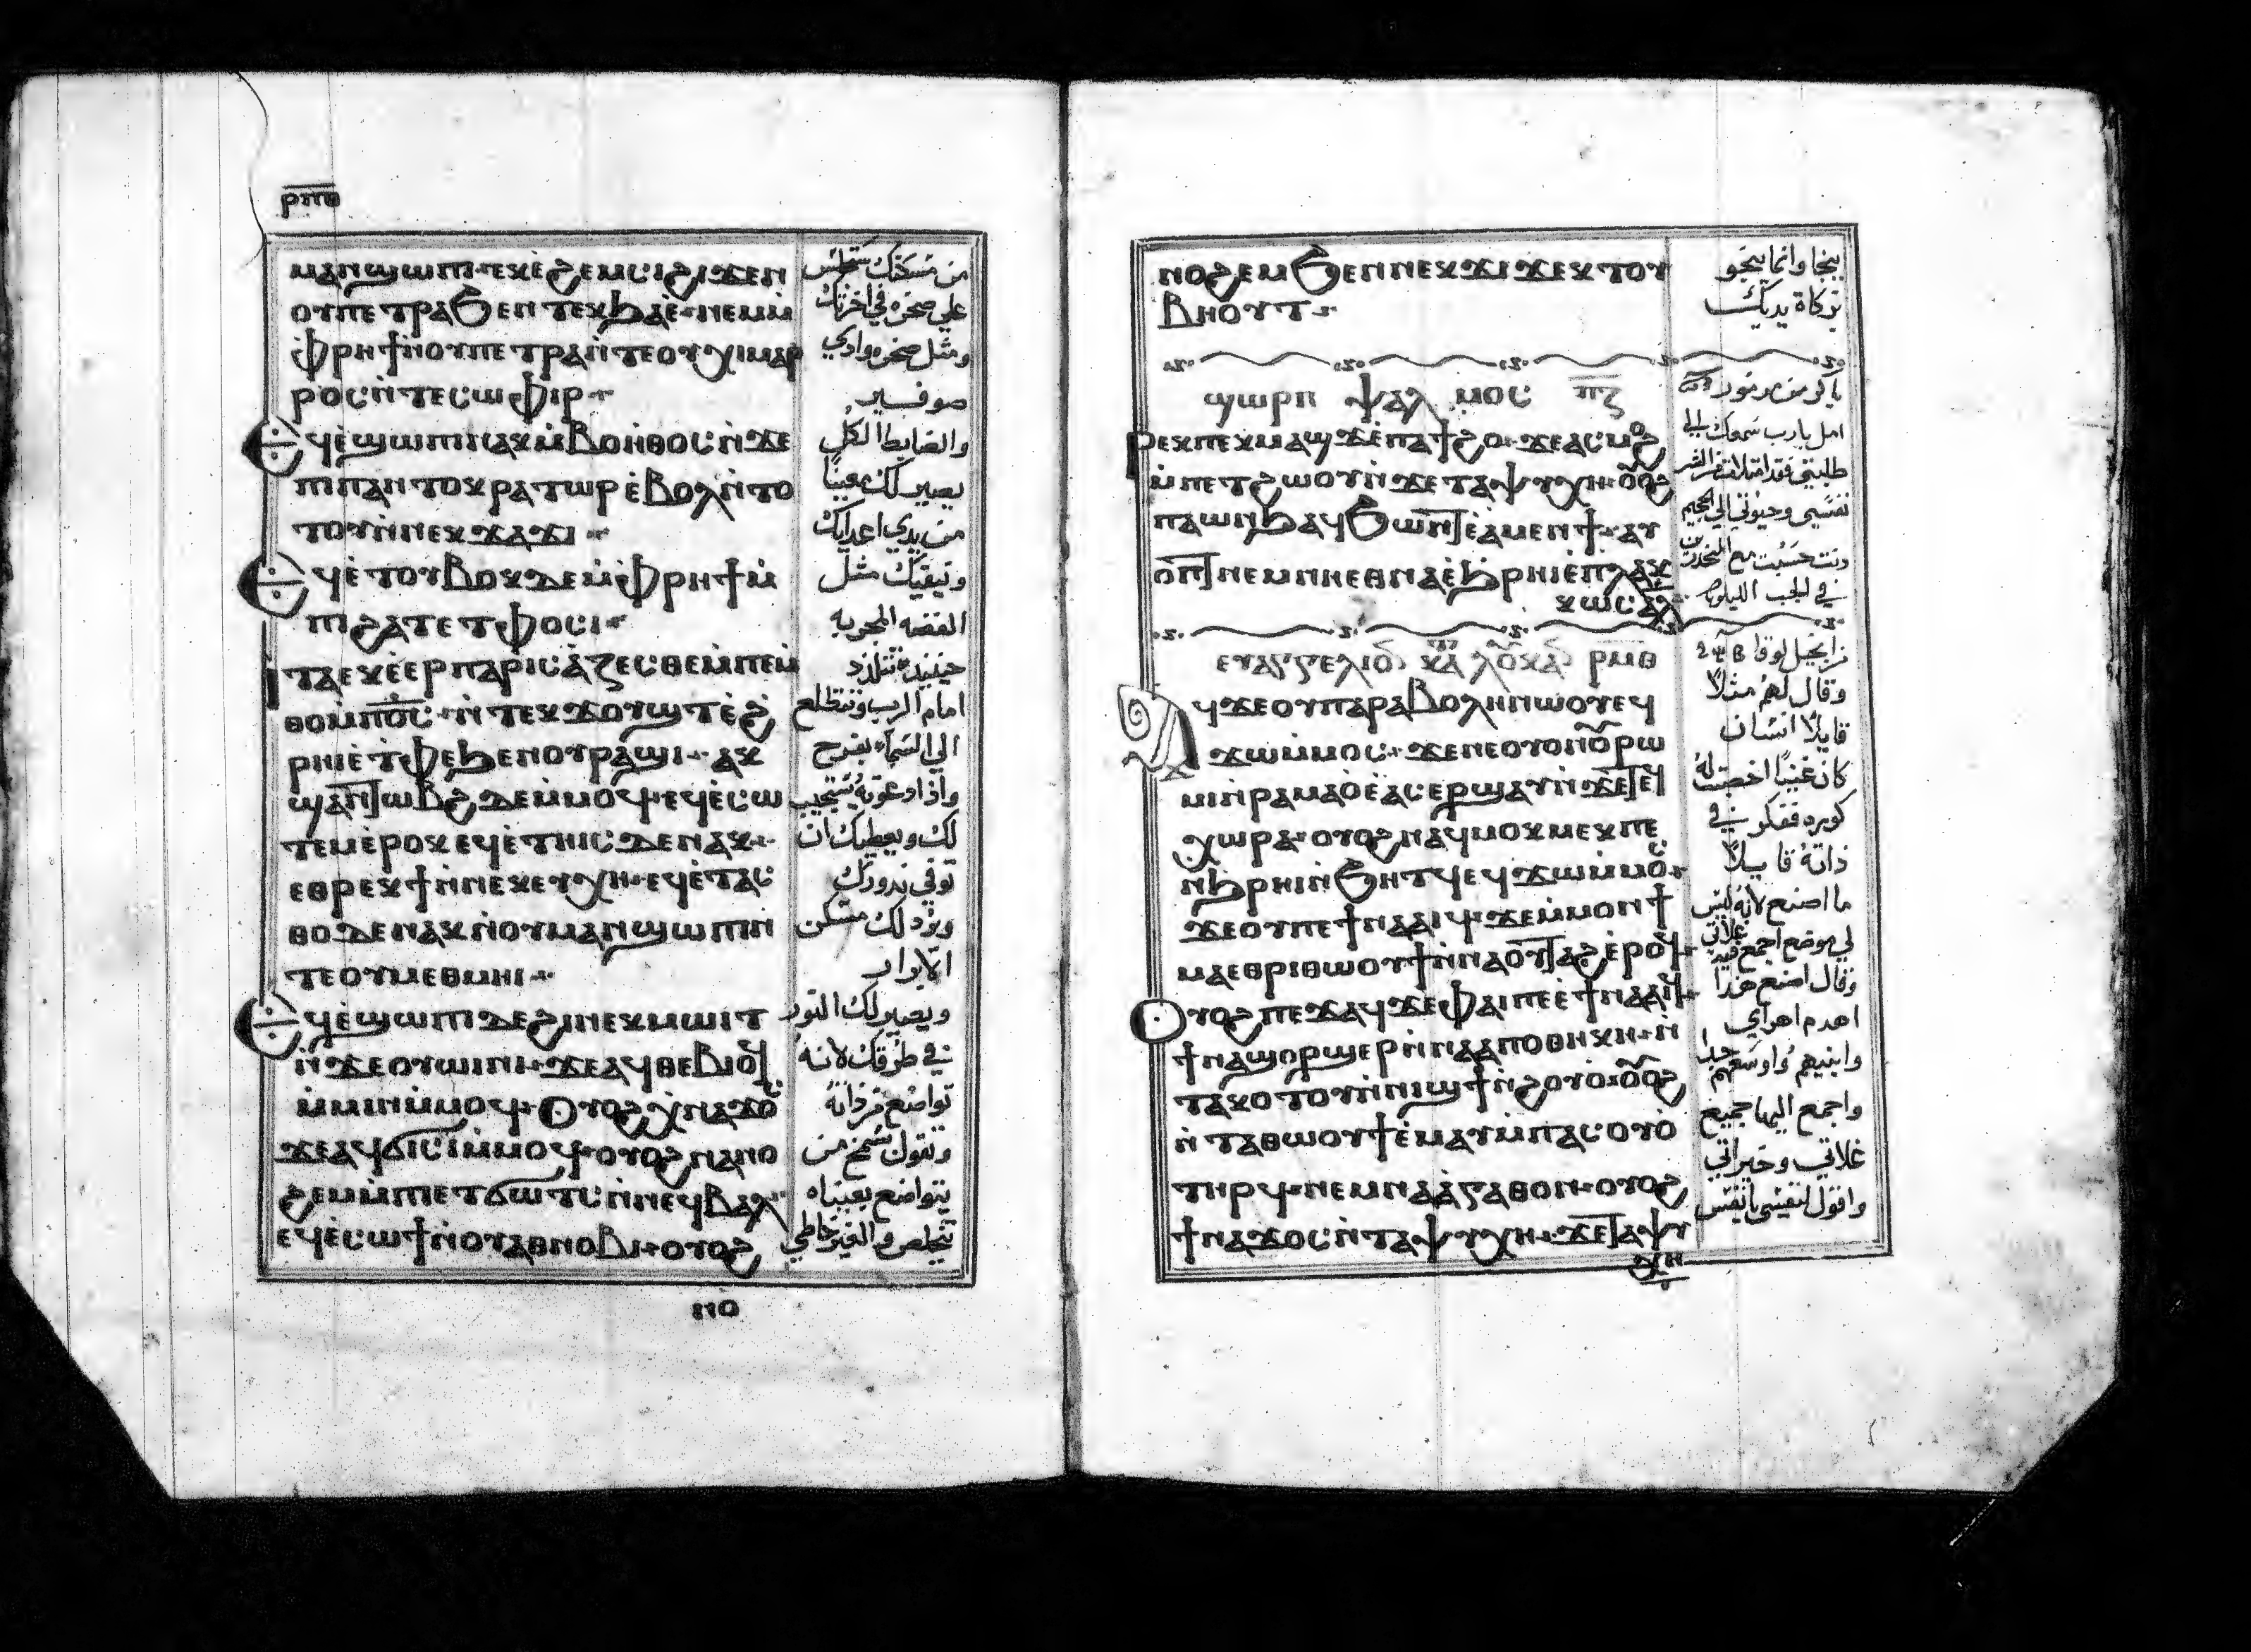 ⲣⲡⲑ
ⲙⲁⲛϣⲱⲡⲓ· ⲉⲕⲉ̀ϩⲉⲙⲥⲓϩⲓϫⲉⲛ
ⲟⲩⲡⲉⲧⲣⲁϧⲉⲛⲧⲉⲕϧⲁⲉ̀· ⲛⲉⲙⲙ̀
ⲫⲣⲏϯⲛ̀ⲟⲩⲡⲉⲧⲣⲁⲛ̀ⲧⲉⲟⲩⲭⲓⲙⲁⲣ
ⲣⲟⲥⲛ̀ⲧⲉⲥⲱⲫⲓⲣ·
ⲉϥⲉ̀ϣⲱⲡⲓⲛⲁⲕⲙ̀ⲃⲟⲏⲑⲟⲥⲛ̀ϫⲉ
ⲡⲓⲡⲁⲛⲧⲟⲕⲣⲁⲧⲱⲣⲉ̀ⲃⲟⲗⲛ̀ⲧⲟ
ⲧⲟⲩⲛ̀ⲛⲉⲕϫⲁϫⲓ·
ⲉϥⲉ̀ⲧⲟⲩⲃⲟⲕⲇⲉⲙ̀ⲫⲣⲏϯⲙ̀
ⲡⲓϩⲁⲧⲉⲧⲫⲟⲥⲓ·
ⲓⲧⲁⲉⲕⲉ̀ⲉⲣⲡⲁⲣⲓⲥⲁ̀ⲍⲉⲥⲑⲉⲙ̀ⲡⲉⲙ̀
ⲑⲟⲙ̀ⲡⲟ̅ⲥ̅· ⲛ̀ⲧⲉⲕϫⲟⲩϣⲧⲉ̀ϩ
ⲣⲏⲓⲉ̀ⲧⲫⲉϧⲉⲛⲟⲩⲣⲁϣⲓ· ⲁⲕ
ϣⲁⲛⲧⲱⲃϩⲇⲉⲙ̀ⲙⲟϥ· ⲉϥⲉ̀ⲥⲱ
ⲧⲉⲙⲉ̀ⲣⲟⲕⲉϥⲉ̀ⲧⲏⲓⲥⲇⲉⲛⲁⲕ·
ⲉⲑⲣⲉⲕϯⲛ̀ⲛⲉⲕⲉⲩⲭⲏ· ⲉϥⲉ̀ⲧⲁⲥ
ⲑⲟⲇⲉⲛⲁⲕⲛ̀ⲟⲩⲙⲁⲛϣⲱⲡⲓⲛ̀
ⲧⲉⲟⲩⲙⲉⲑⲙⲏⲓ·
ⲉϥⲉ̀ϣⲱⲡⲓⲇⲉϩⲓⲛⲉⲕⲙⲱⲓⲧ
ⲛ̀ϫⲉⲟⲩⲱⲓⲛⲓ· ϫⲉⲁϥⲑⲉⲃⲓⲟϥ
ⲙ̀ⲙⲓⲛⲙ̀ⲙⲟϥ· ⲟⲩⲟϩⲭⲛⲁϫⲟⲥ
ϫⲉⲁϥϭⲓⲥⲓⲙ̀ⲙⲟϥ· ⲟⲩⲟϩⲛⲁⲛⲟ
ϩⲉⲙⲙ̀ⲡⲉⲧϭⲱⲧⲥⲛ̀ⲛⲉϥⲃⲁⲗ
ⲉϥⲉ̀ⲥⲱϯⲛ̀ⲟⲩⲁⲑⲛⲟⲃⲓ· ⲟⲩⲟϩ
من مسكنك تتجلس
علي صخره في اخرتك
ومثل صخره وادي
صوفير
والضابط الكل
يصير لك معينا
من يدي اعدايك
وينقيك مثل
الفضه المجربه
حينيذ تتلذذ
امام الرب وتتطلع
الي السماء بفرح
واذا دعوته يستجيب
لك ويعطيك ان
توفي ندورك
ويرد لك مسكن
الابرار
ويصير لك النور
في طرقك لانه
تواضع من ذاته
وتقول شمخ من
يتواضع بعيناه
تتخلص والغير خاطي
ⲛⲟϩⲉⲙϧⲉⲛⲛⲉⲕϫⲓϫⲉⲕⲧⲟⲩ
ⲃⲏⲟⲩⲧ·
ϣⲱⲣⲡ ⲯⲁⲗⲙⲟⲥ ⲡ̅ⲍ̅
ⲣⲉⲕⲡⲉⲕⲙⲁϣϫⲉ̀ⲡⲁϯϩⲟ· ϫⲉⲁⲥⲙⲟϩ
ⲙ̀ⲡⲉⲧϩⲱⲟⲩⲛ̀ϫⲉⲧⲁⲯⲩⲭⲏ· ⲟⲩⲟϩ
ⲡⲁⲱⲛϧⲁϥϧⲱⲛⲧⲉ̀ⲁ̀ⲙⲉⲛϯ· ⲁⲩ
ⲟⲡⲧⲛⲉⲙⲛⲏⲉⲑⲛⲁⲉ̀ϧⲣⲏⲓⲉ̀ⲡⲗⲁⲕ
ⲕⲱⲥⲁⲗ
ⲉⲩⲁⲅⲅⲉⲗⲓⲟⲛ ⲕⲁⲧⲁ ⲗⲟⲩⲕⲁⲛ ⲣⲙⲑ
ⲁϥϫⲉⲟⲩⲡⲁⲣⲁⲃⲟⲗⲏⲛⲱⲟⲩⲉϥ
ϫⲱⲙ̀ⲙⲟⲥ· ϫⲉⲛⲉⲟⲩⲟⲛⲟⲩⲣⲱ
ⲙⲓⲛ̀ⲣⲁⲙⲁⲟ̀ⲉ̀ⲁⲥⲉⲣϣⲁⲩⲛ̀ϫⲉⲧⲉϥ
ⲭⲱⲣⲁ· ⲟⲩⲟϩⲛⲁϥⲙⲟⲕⲙⲉⲕⲡⲉ
ⲛ̀ϧⲣⲏⲓⲛ̀ϧⲏⲧϥⲉϥϫⲱⲙ̀ⲙⲟⲥ·
ϫⲉⲟⲩⲡⲉϯⲛⲁⲁⲓϥ· ϫⲉⲙ̀ⲙⲟⲛϯ
ⲙⲁⲉⲑⲣⲓⲑⲱⲟⲩϯⲛ̀ⲛⲁⲟⲩⲧⲁϩⲉ̀ⲣⲟϥ·
ⲟⲩⲟϩⲡⲉϫⲁϥϫⲉⲫⲁⲓⲡⲉⲉ̀ϯⲛⲁⲁⲓϥ·
ϯⲛⲁϣⲟⲣϣⲉⲣⲛ̀ⲛⲁⲁⲡⲟⲑⲏⲕⲏ· ⲛ̀
ⲧⲁⲕⲟⲧⲟⲩⲛ̀ⲛⲓϣϯⲛ̀ϩⲟⲩⲟ· ⲟⲩⲟϩ
ⲛ̀ⲧⲁⲑⲱⲟⲩϯⲉ̀ⲙⲁⲩⲙ̀ⲡⲁⲥⲟⲩⲟ
ⲧⲏⲣϥ· ⲛⲉⲙⲛⲁⲁ̀ⲅⲁⲑⲟⲛ· ⲟⲩⲟϩ
ϯⲛⲁϫⲟⲥⲛ̀ⲧⲁⲯⲩⲭⲏ· ϫⲉⲧⲁⲯⲩ
ⲭⲏ
ينجا وانما ينجو
بزكاة يديك
باكر من مزمور
امل يارب سمعك الي
طلبتي فقد امتلات من الشر
نفسي وحيوتي الي الجحيم
دنت حسبت مع المنحدرين
في الجب الليلويا
من انجيل لوقا
وقال لهم مثلا
قايلا انسان
كان غنيا اخصبت له
كوره ففكر في
ذاته قايلا
ما اصنع لانه ليس
لي موضع اجمع فيه غلاتي
وقال اصنع هذا
اهدم اهراي
وابنيهم واوسعهم جدا
واجمع اليها جميع
غلاتي وخيراتي
واقول لنفسي يا نفس